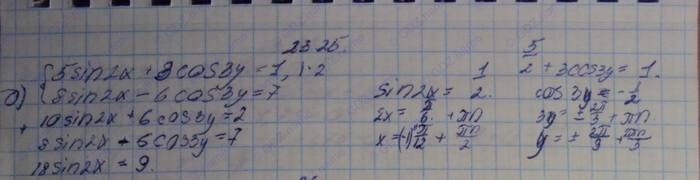 23.25
{5sin2x + 3cos3y = 1, | · 2
б) {8sin2x - 6cos3y = 7
+ 10sin2x + 6cos3y = 2
8sin2x - 6cos3y = 7
18sin2x = 9.
sin2x = 1/2.
2x = π/6 + πn
x = (-1)ⁿ π/12 + πn/2
5/2 + 3cos3y = 1.
cos3y = -1/2
3y = ± 2π/3 + πn.
y = ± 2π/9 + πn/3